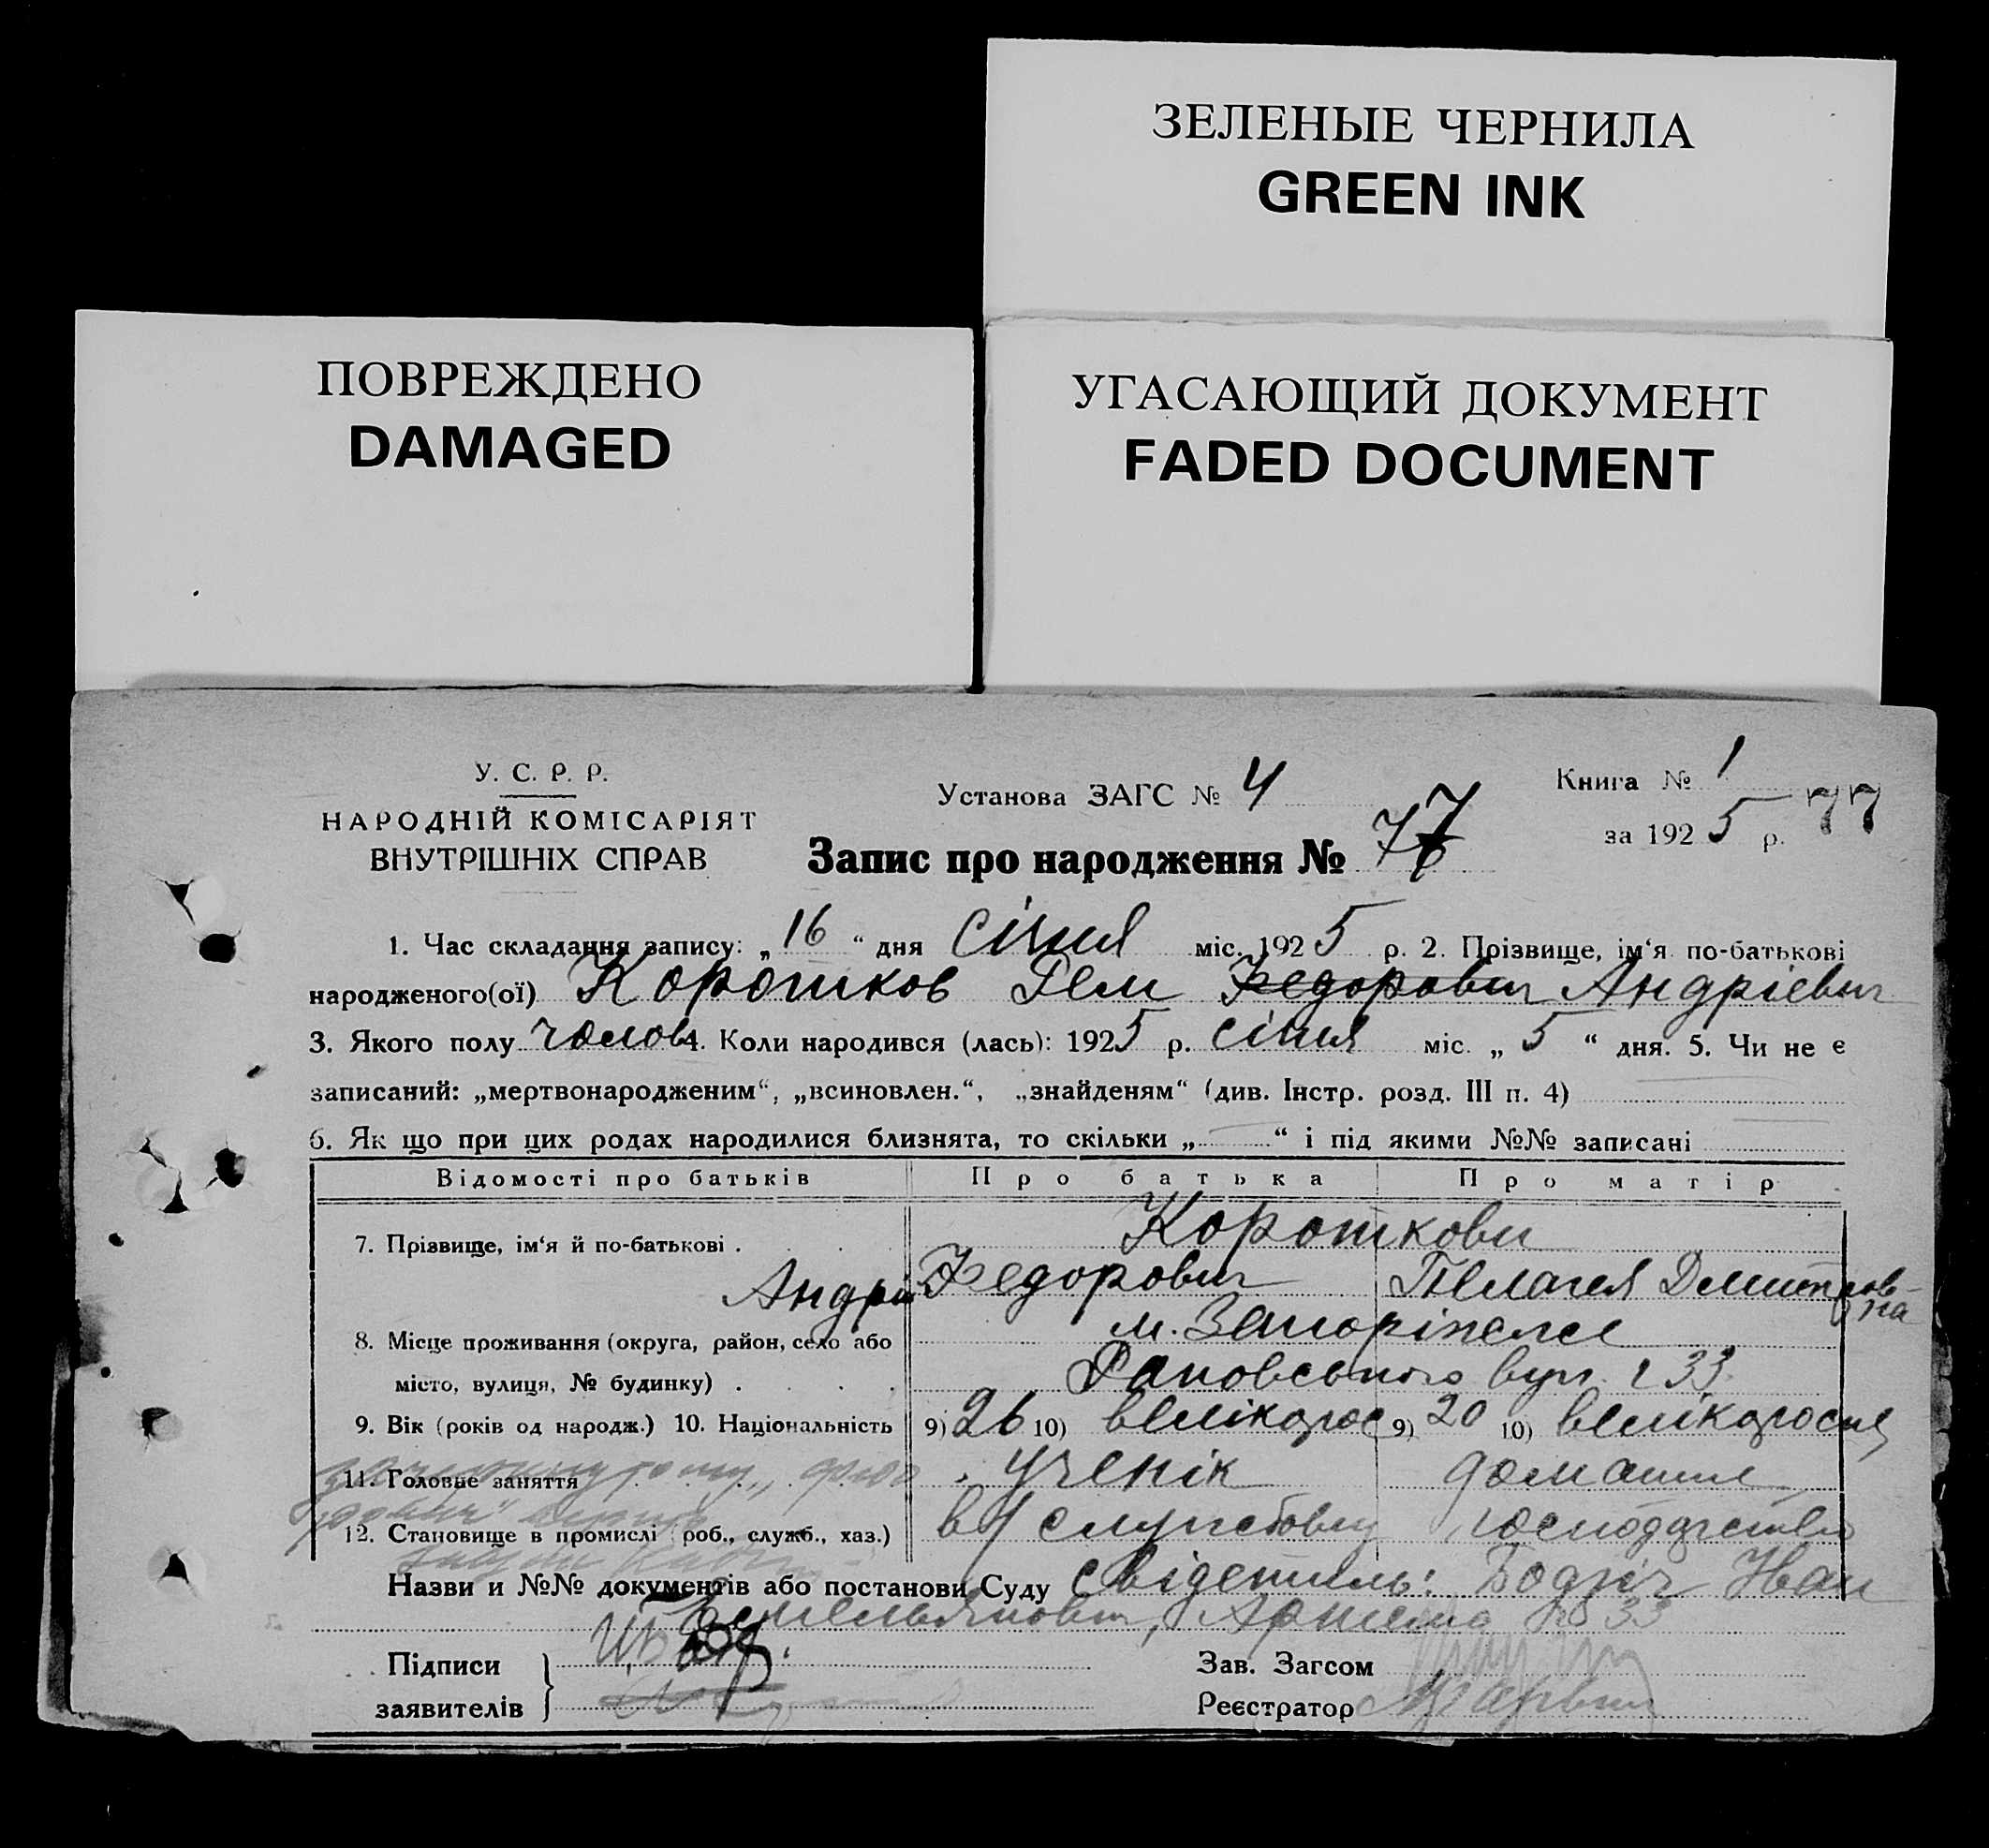 ЗЕЛЕНЫЕ ЧЕРНИЛА
GREEN INK
ПОВРЕЖДЕНО
DAMAGED
УГАСАЮЩИЙ ДОКУМЕНТ
FADED DOCUMENT
У. С. Р. Р.
НАРОДНІЙ КОМІСАРІЯТ
ВНУТРІШНІХ СПРАВ
Установа ЗАГС № 4
Запис про народження № 77
Книга № 1
за 1925 р. 77
1. Час складання запису: „16“ дня січня міс. 1925 р. 2. Прізвище, ім‘я по-батькові
народженого(ої) Коротков Рем Федорович Андріевич
3. Якого полу чолов. 4. Коли народився (лась): 1925 р. січня міс. „5“ дня. 5. Чи не є
записаний: „мертвонародженим“, „всиновлен.“, „знайденям“ (див. Інстр. розд. III п. 4)
6. Як що при цих родах народилися близнята, то скільки „ “ і під якими №№ записані
Відомості про батьків Про батька Про матір
7. Прізвище, ім‘я й по-батькові . Короткови
Андрій Федорович Пелагея Дмитровна
8. Місце проживання (округа, район, село або м. Запоріжже
місто, вулиця, № будинку) . вул. 33
9. Вік (років од народж.) 10. Національність 9) 26 10) велікорос 9) 20 10) велікоросия
11. Головне заняття ученік домашнє
12. Становище в промислі (роб., служб., хаз.) господарство
Назви и №№ документів або постанови Суду свідетиль: Іван
Емельянович, Артема 33
Підписи
заявителів
Зав. Загсом
Реєстратор